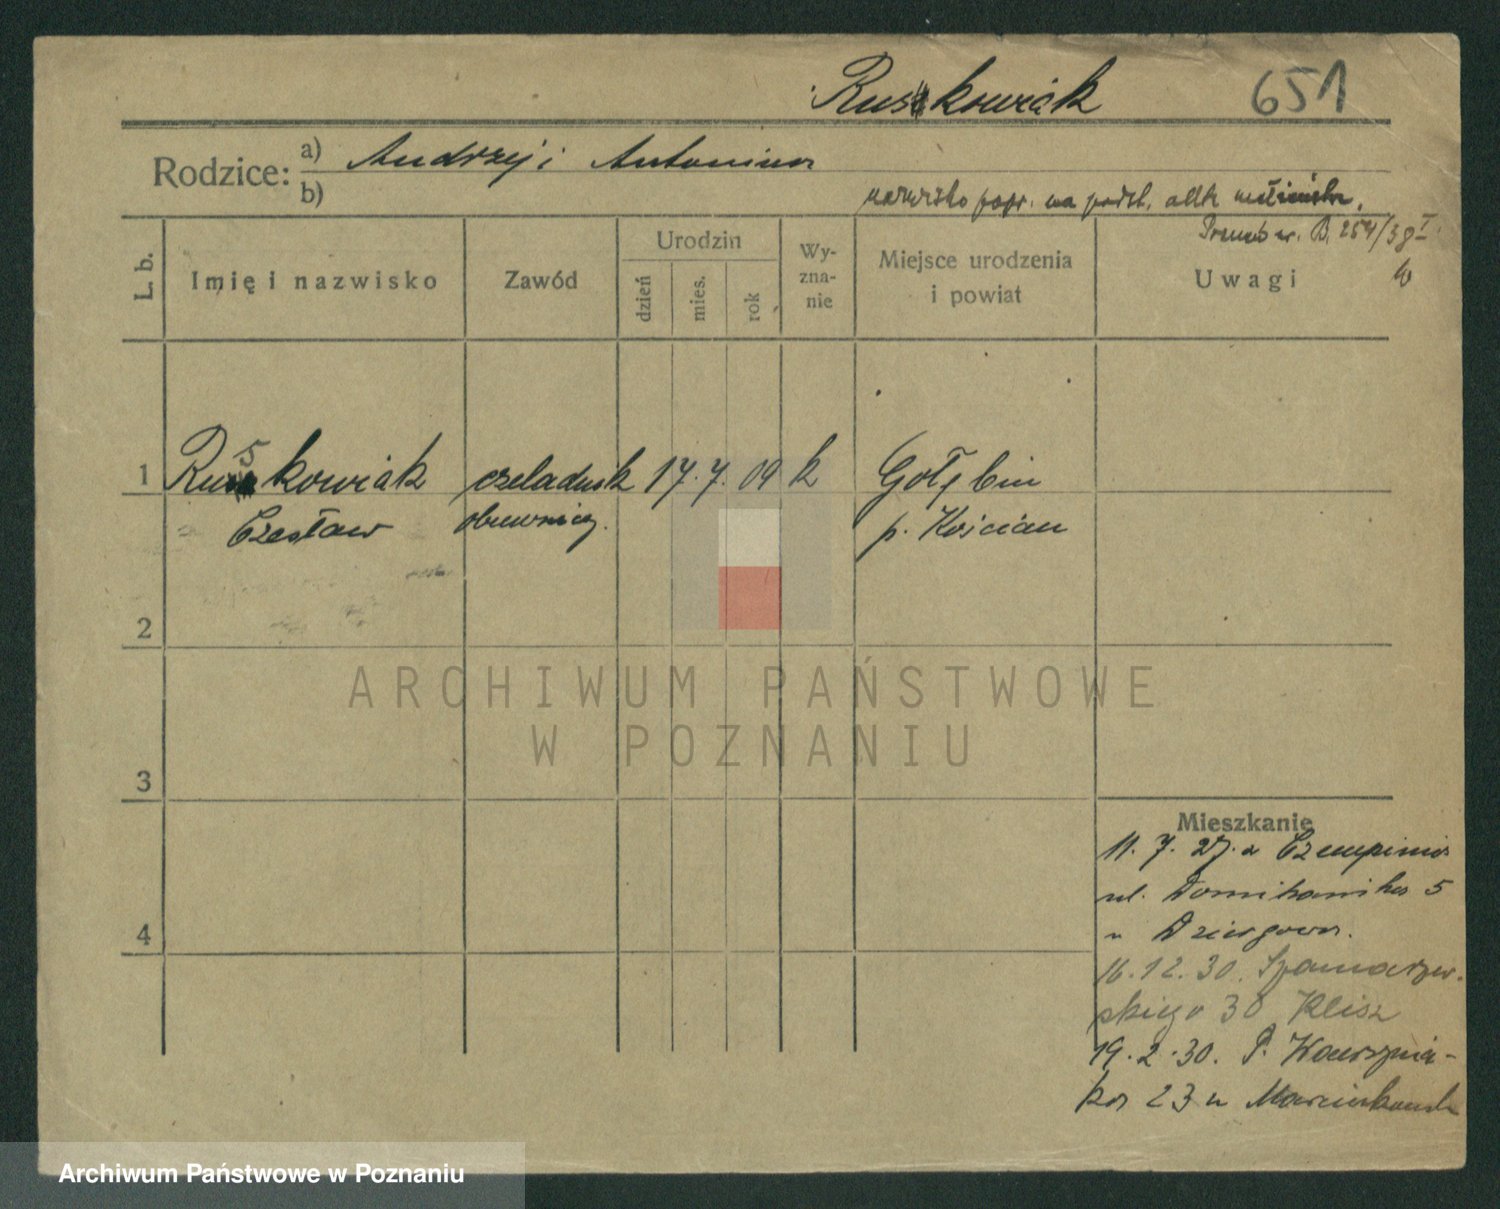 Ruskowiak 651
Rodzice: a) Andrzej i Antonina
b)
nazwisko popr. na podst.
B. 254/38 I
L. b. Imię i nazwisko Zawód Urodzin dzień mies. rok Wy-zna-nie Miejsce urodzenia i powiat Uwagi
1 Ruskowiak czeladnik 17. 7. 09 k Gołębin
Czesław obuwnicz. p. Kościan
2
3
4
Mieszkanie
11. 7. 27. z Czempinia
ul. Dominikańska 5
u
16. 12. 30. Szamarzew-
skiego 30 Klisz
19. 2. 30. P. Wawrzynia-
ka 23 u
ARCHIWUM PAŃSTWOWE
W POZNANIU
Archiwum Państwowe w Poznaniu